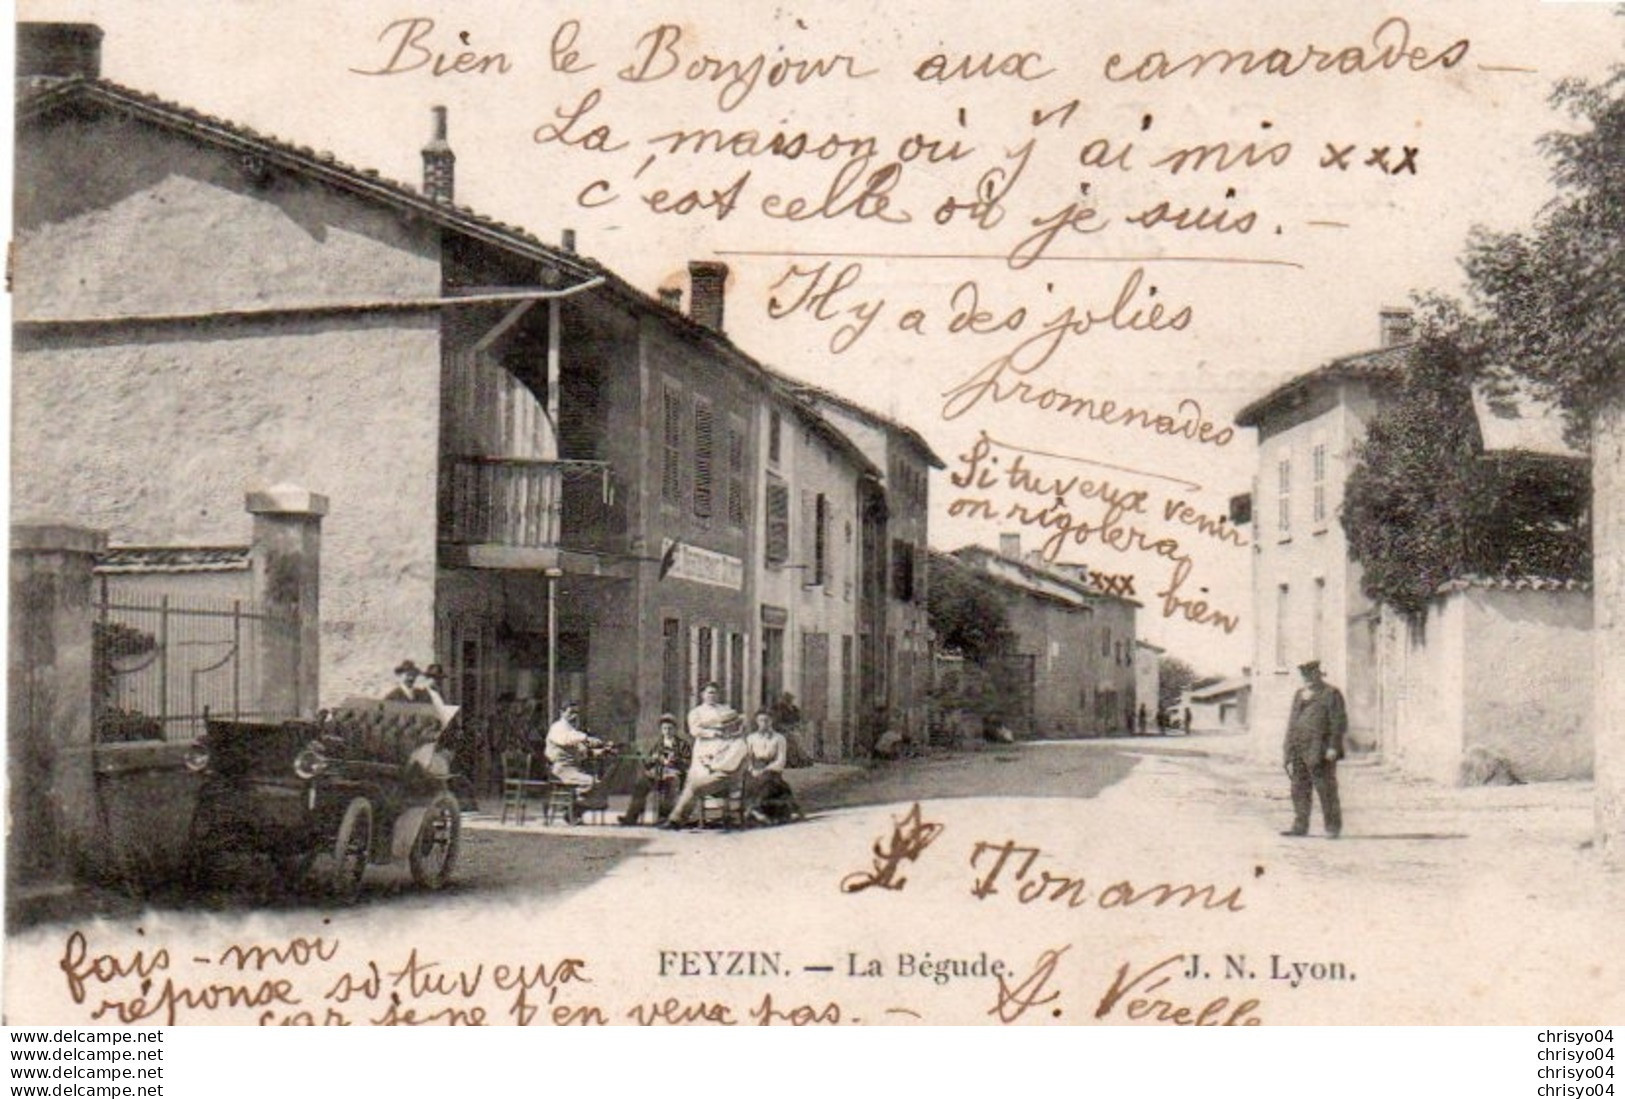 Bien le Bonjour aux camarades _
La maison où j'ai mis xxx
c'est celle où je suis. _
Il y a des jolies
promenades
Si tu veux venir
on rigolera
xxx bien
Tonami
FEYZIN. — La Bégude.
J. N. Lyon.
fais-moi
réponse si tu veux
car je ne t'en veux pas. _
Vérelle
www.delcampe.net
www.delcampe.net
www.delcampe.net
www.delcampe.net
chrisyo04
chrisyo04
chrisyo04
chrisyo04